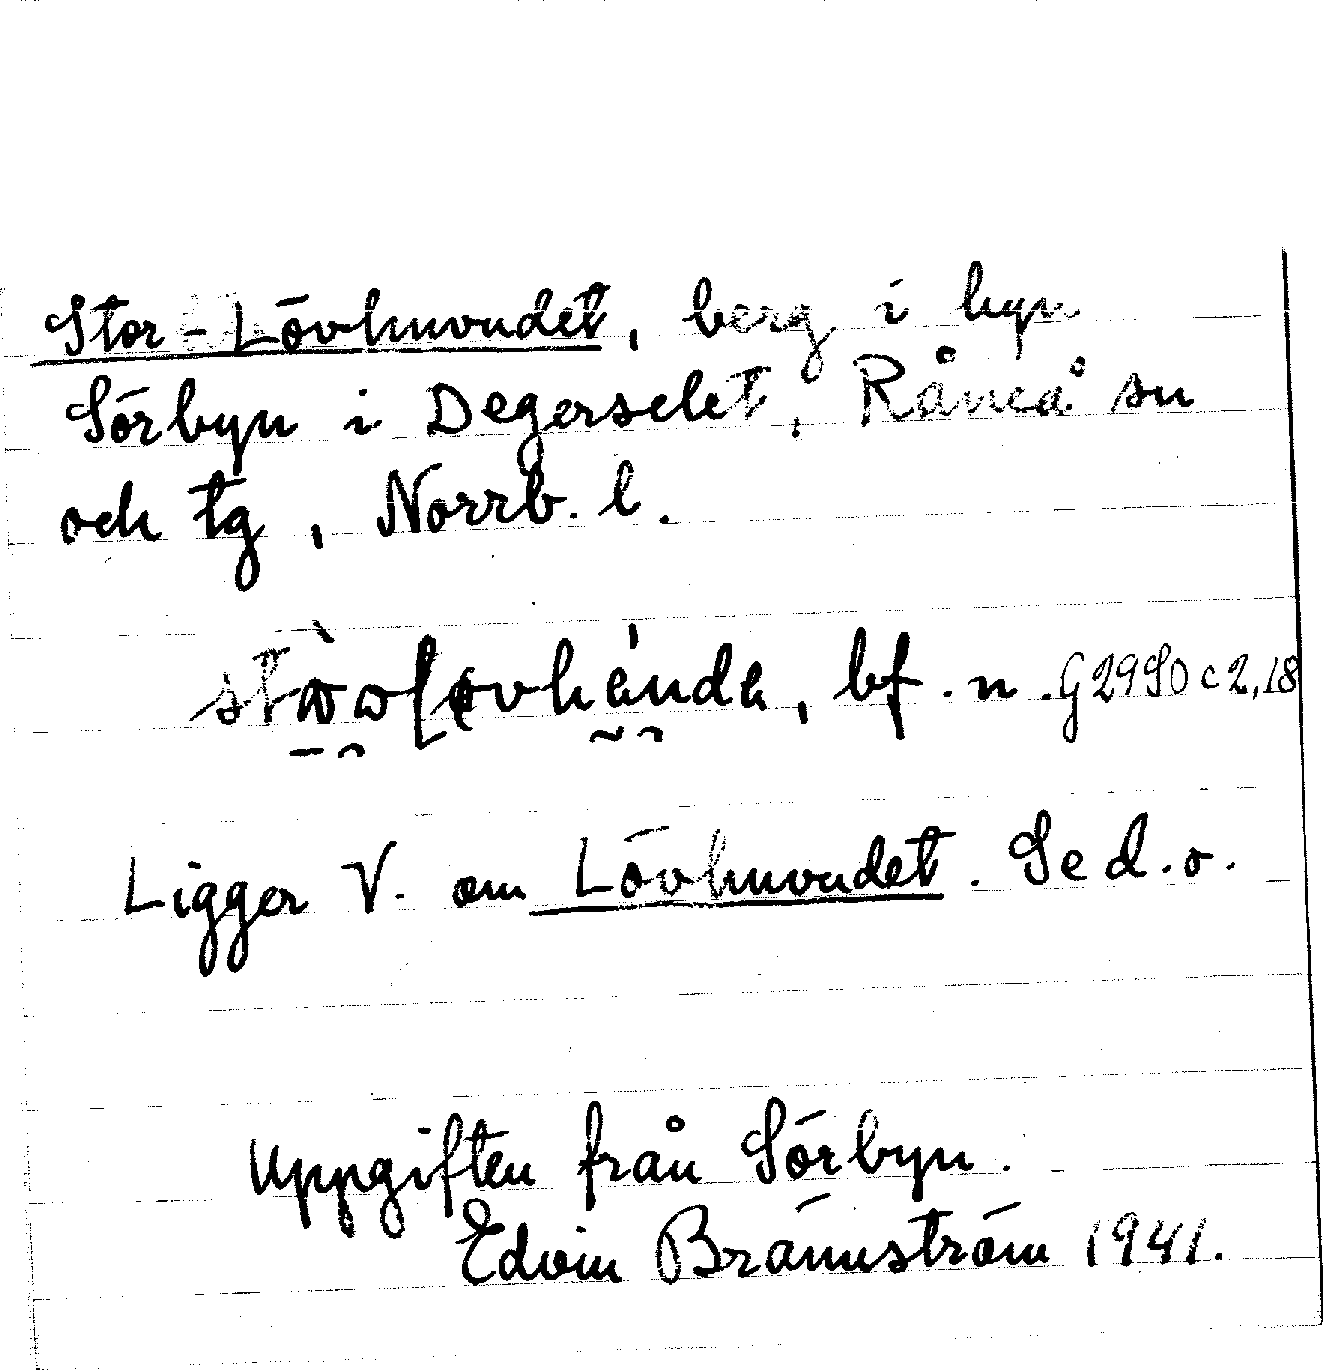 Stor-Lövhuvudet, berg i byn
Sörbyn i Degerselet, Råneå sn
och tg, Norrb. l.
bf. n. G2990 c2,18
Ligger V. om Lövhuvudet. Se d.o.
Uppgiften från Sörbyn.
Edvin Brännström 1941.